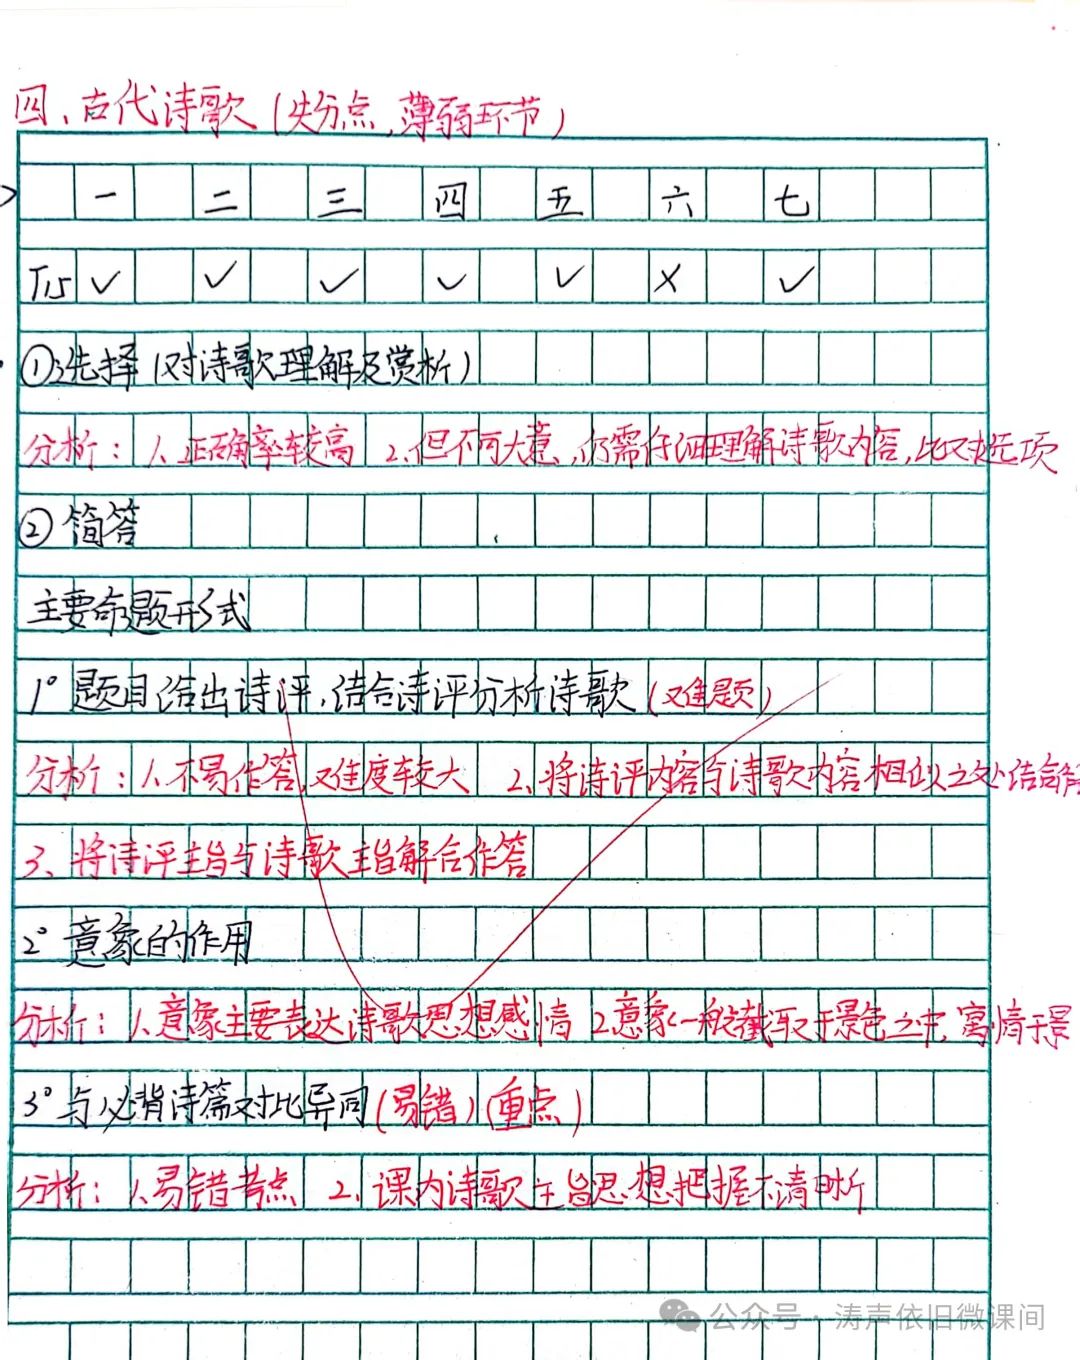 四、古代诗歌(失分点,薄弱环节)
一 二 三 四 五 六 七
T15 ✓ ✓ ✓ ✓ ✓ × ✓
①选择(对诗歌理解及赏析)
分析:1、正确率较高 2、但不可大意,仍需仔细理解诗歌内容,比对选项
②简答
主要命题形式
1° 题目给出诗评,结合诗评分析诗歌(难题)
分析:1、不易作答,难度较大 2、将诗评内容与诗歌内容相似之处结合解
3、将诗评主旨与诗歌主旨解合作答
2° 意象的作用
分析:1、意象主要表达诗歌思想感情 2、意象一般截取于景色之中,寓情于景
3° 与必背诗篇对比异同(易错)(重点)
分析:1、易错考点 2、课内诗歌主旨思想把握不清晰
公众号·涛声依旧微课间